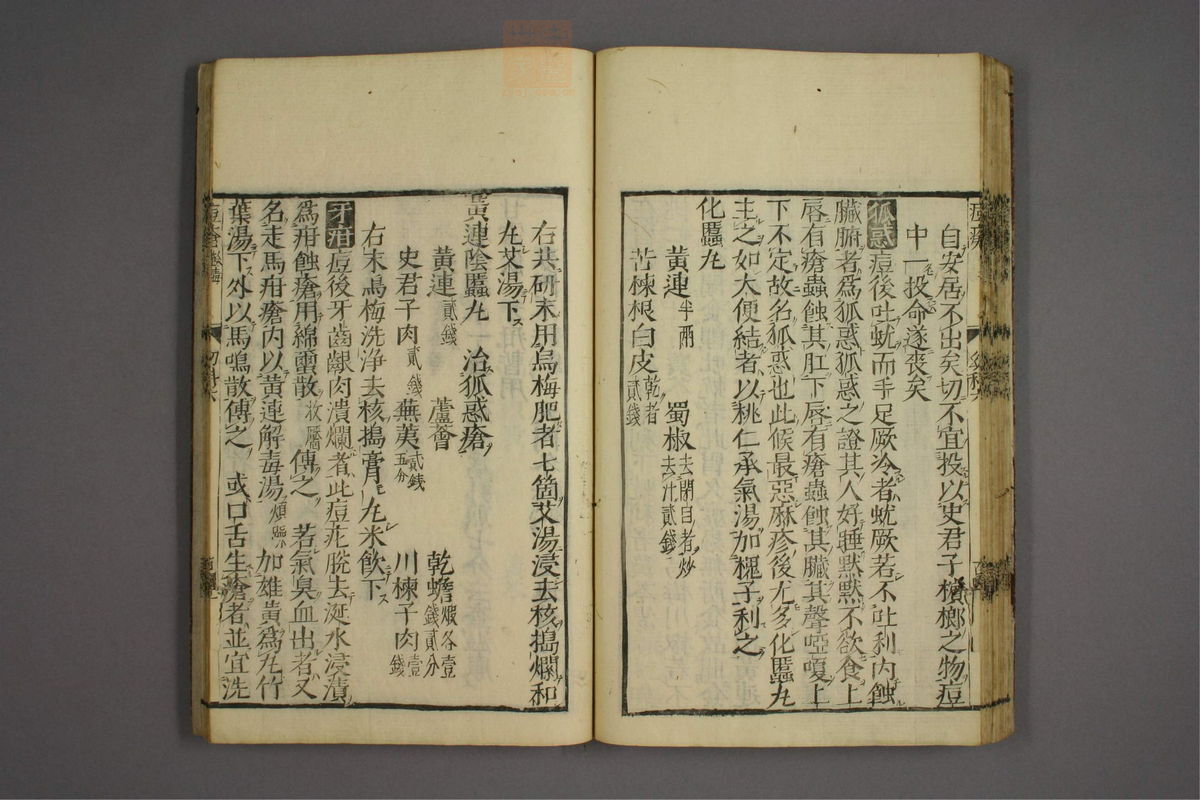 自安居不出矣切不宜投以史君子檳榔之物痘
中一投命遂喪矣
狐惑痘後吐蚘而手足厥冷者蚘厥若不吐利內蝕
臟腑者爲狐惑狐惑之證其人好睡默默不欲食上
唇有瘡蟲蝕其肛下唇有瘡蟲蝕其臟其聲啞嗄上
下不定故名狐惑也此候最惡麻疹後尤多化䘌丸
主之如大便結者以桃仁承氣湯加槐子利之
化䘌丸
黃連半兩 蜀椒去閉目者炒去汁貳錢
苦楝根白皮乾者貳錢
右共研末用烏梅肥者七箇艾湯浸去核搗爛和
丸艾湯下
黃連陰䘌丸 治狐惑瘡
黃連貳錢 蘆薈 乾蟾煅各壹錢貳分
史君子肉貳錢 蕪荑貳錢五分 川楝子肉壹錢
右末烏梅洗淨去核搗膏丸米飲下
牙疳痘後牙齒齦肉潰爛者此痘疕脫去涎水浸漬
爲疳蝕瘡用綿蠒散 傅之 若氣臭血出者又
名走馬疳瘡內以黃連解毒湯煩躁加雄黃爲丸竹
葉湯下外以馬鳴散傅之 或口舌生瘡者並宜洗